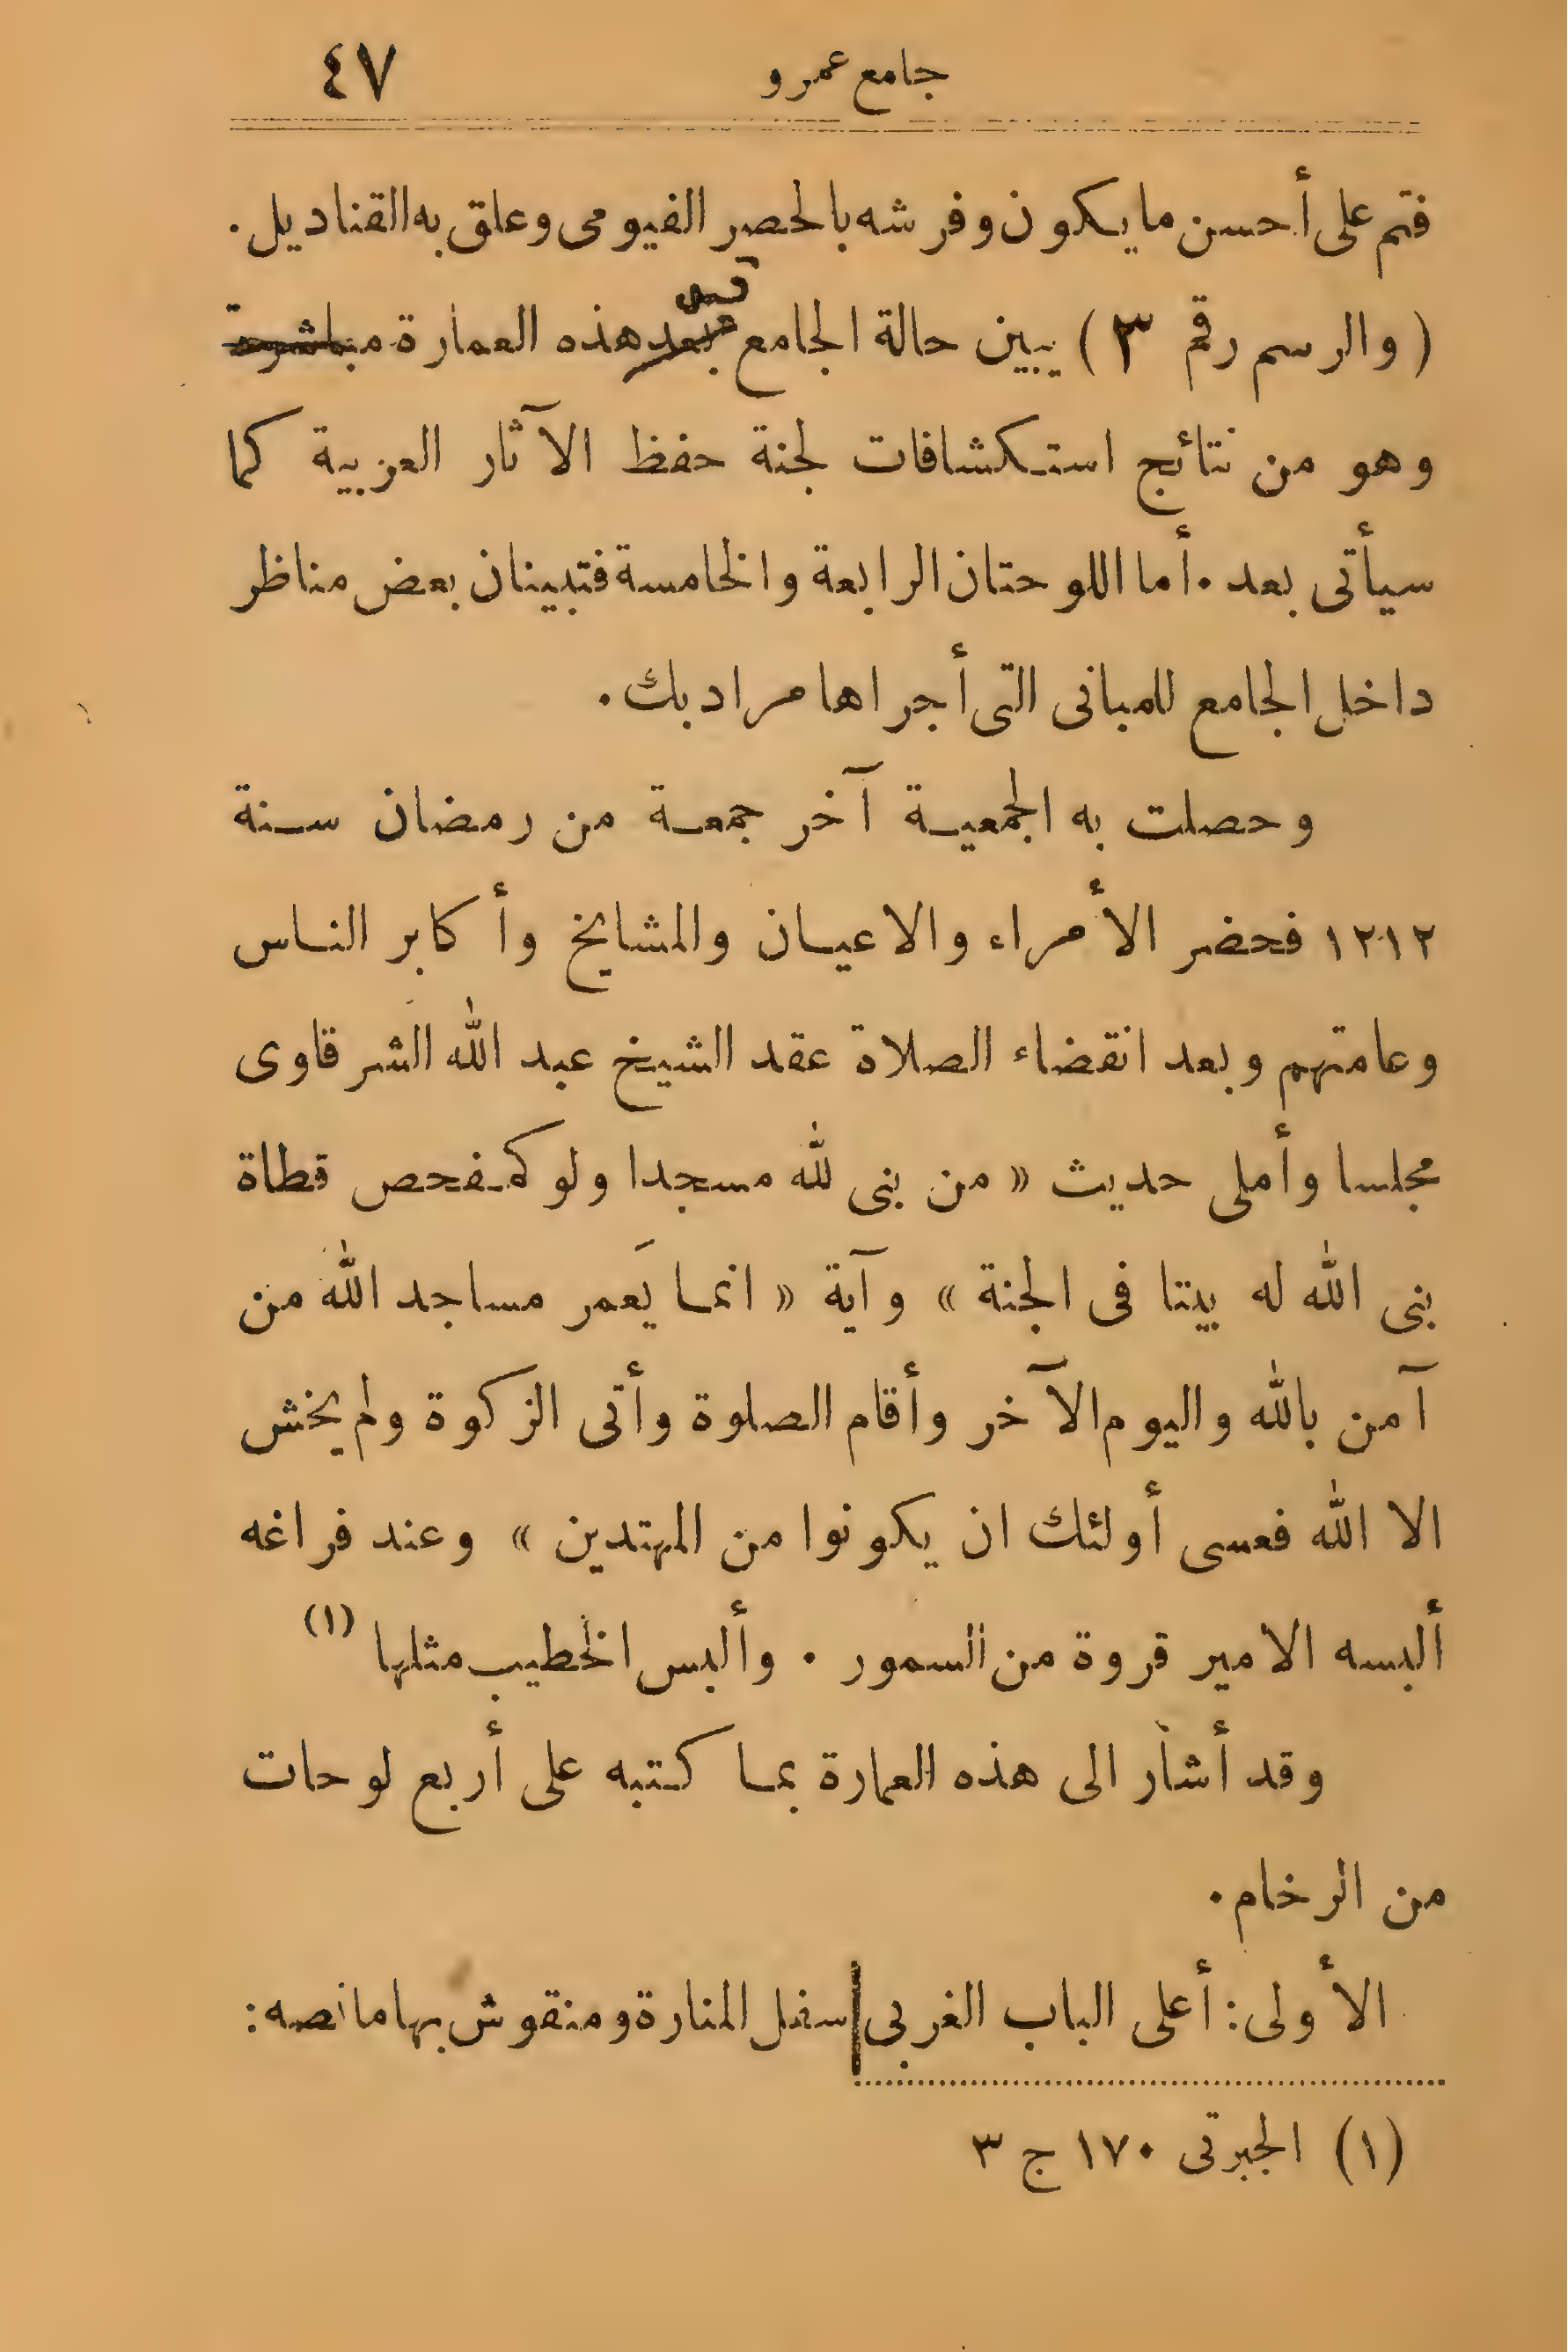 جامع عمرو ٤٧
فتم على أحسن ما يكون وفرشه بالحصر الفيومى وعلق به القناديل.
(والرسم رقم ٣) يبين حالة الجامع بعد هذه العمارة مباشرة
وهو من نتائج استكشافات لجنة حفظ الآثار العربية كما
سيأتى بعد. أما اللوحتان الرابعة والخامسة فتبينان بعض مناظر
داخل الجامع للمبانى التى أجراها مراد بك.
وحصلت به الجمعية آخر جمعة من رمضان سنة
١٢١٢ فحضر الأمراء والاعيان والمشايخ وأكابر الناس
وعامتهم وبعد انقضاء الصلاة عقد الشيخ عبد الله الشرقاوى
مجلسا وأملى حديث « من بنى لله مسجدا ولو كمفحص قطاة
بنى الله له بيتا فى الجنة » وآية « انما يَعمر مساجد الله من
آمن بالله واليوم الآخر وأقام الصلوة وأتى الزكوة ولم يخش
الا الله فعسى أولئك ان يكونوا من المهتدين » وعند فراغه
ألبسه الامير قروة من السمور. وألبس الخطيب مثلها (١)
وقد أشار الى هذه العمارة بما كتبه على أربع لوحات
من الرخام.
الأولى: أعلى الباب الغربى اسفل المنارة ومنقوش بها ما نصه:
(١) الجبرتى ١٧٠ ج ٣